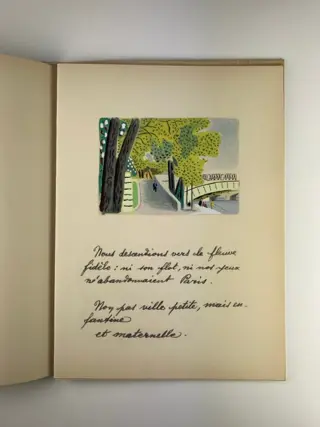 Nous descendions vers le fleuve
fidèle : ni son flot, ni nos yeux
n'abandonnaient Paris.
Non pas ville petite, mais en-
fantine
et maternelle.